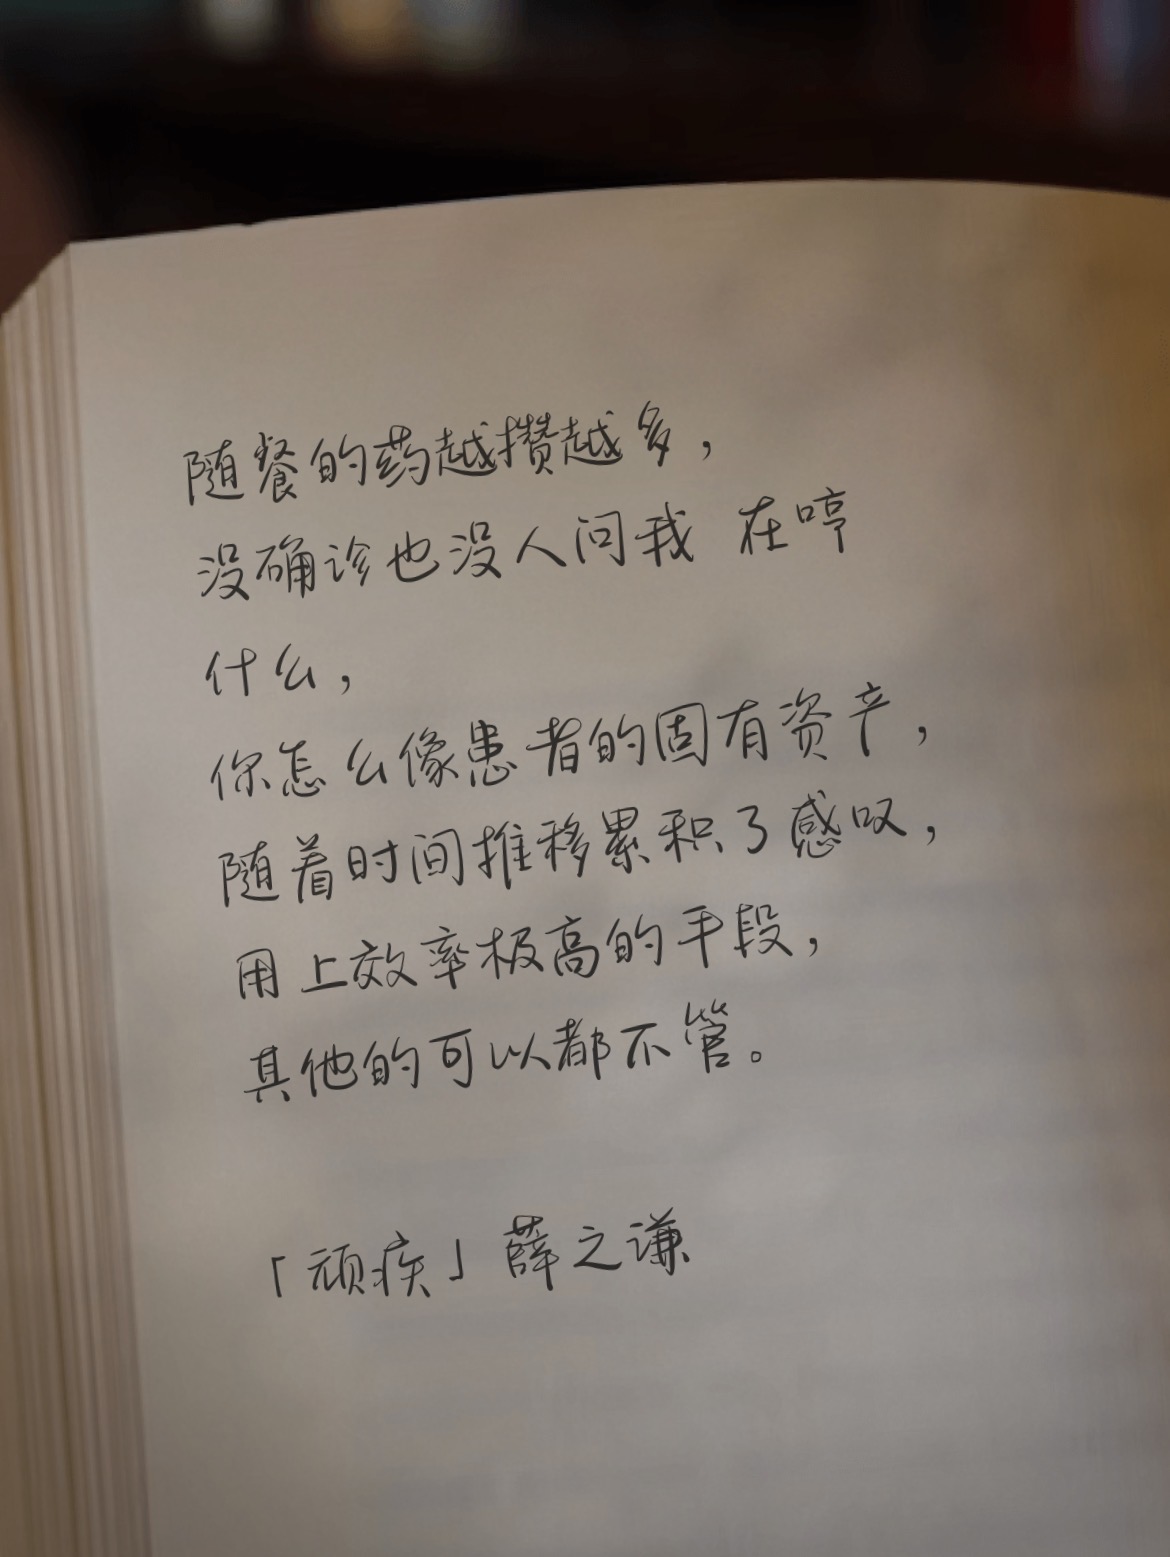 随餐的药越攒越多，
没确诊也没人问我 在哼
什么，
你怎么像患者的固有资产，
随着时间推移累积了感叹，
用上效率极高的手段，
其他的可以都不管。
「顽疾」薛之谦